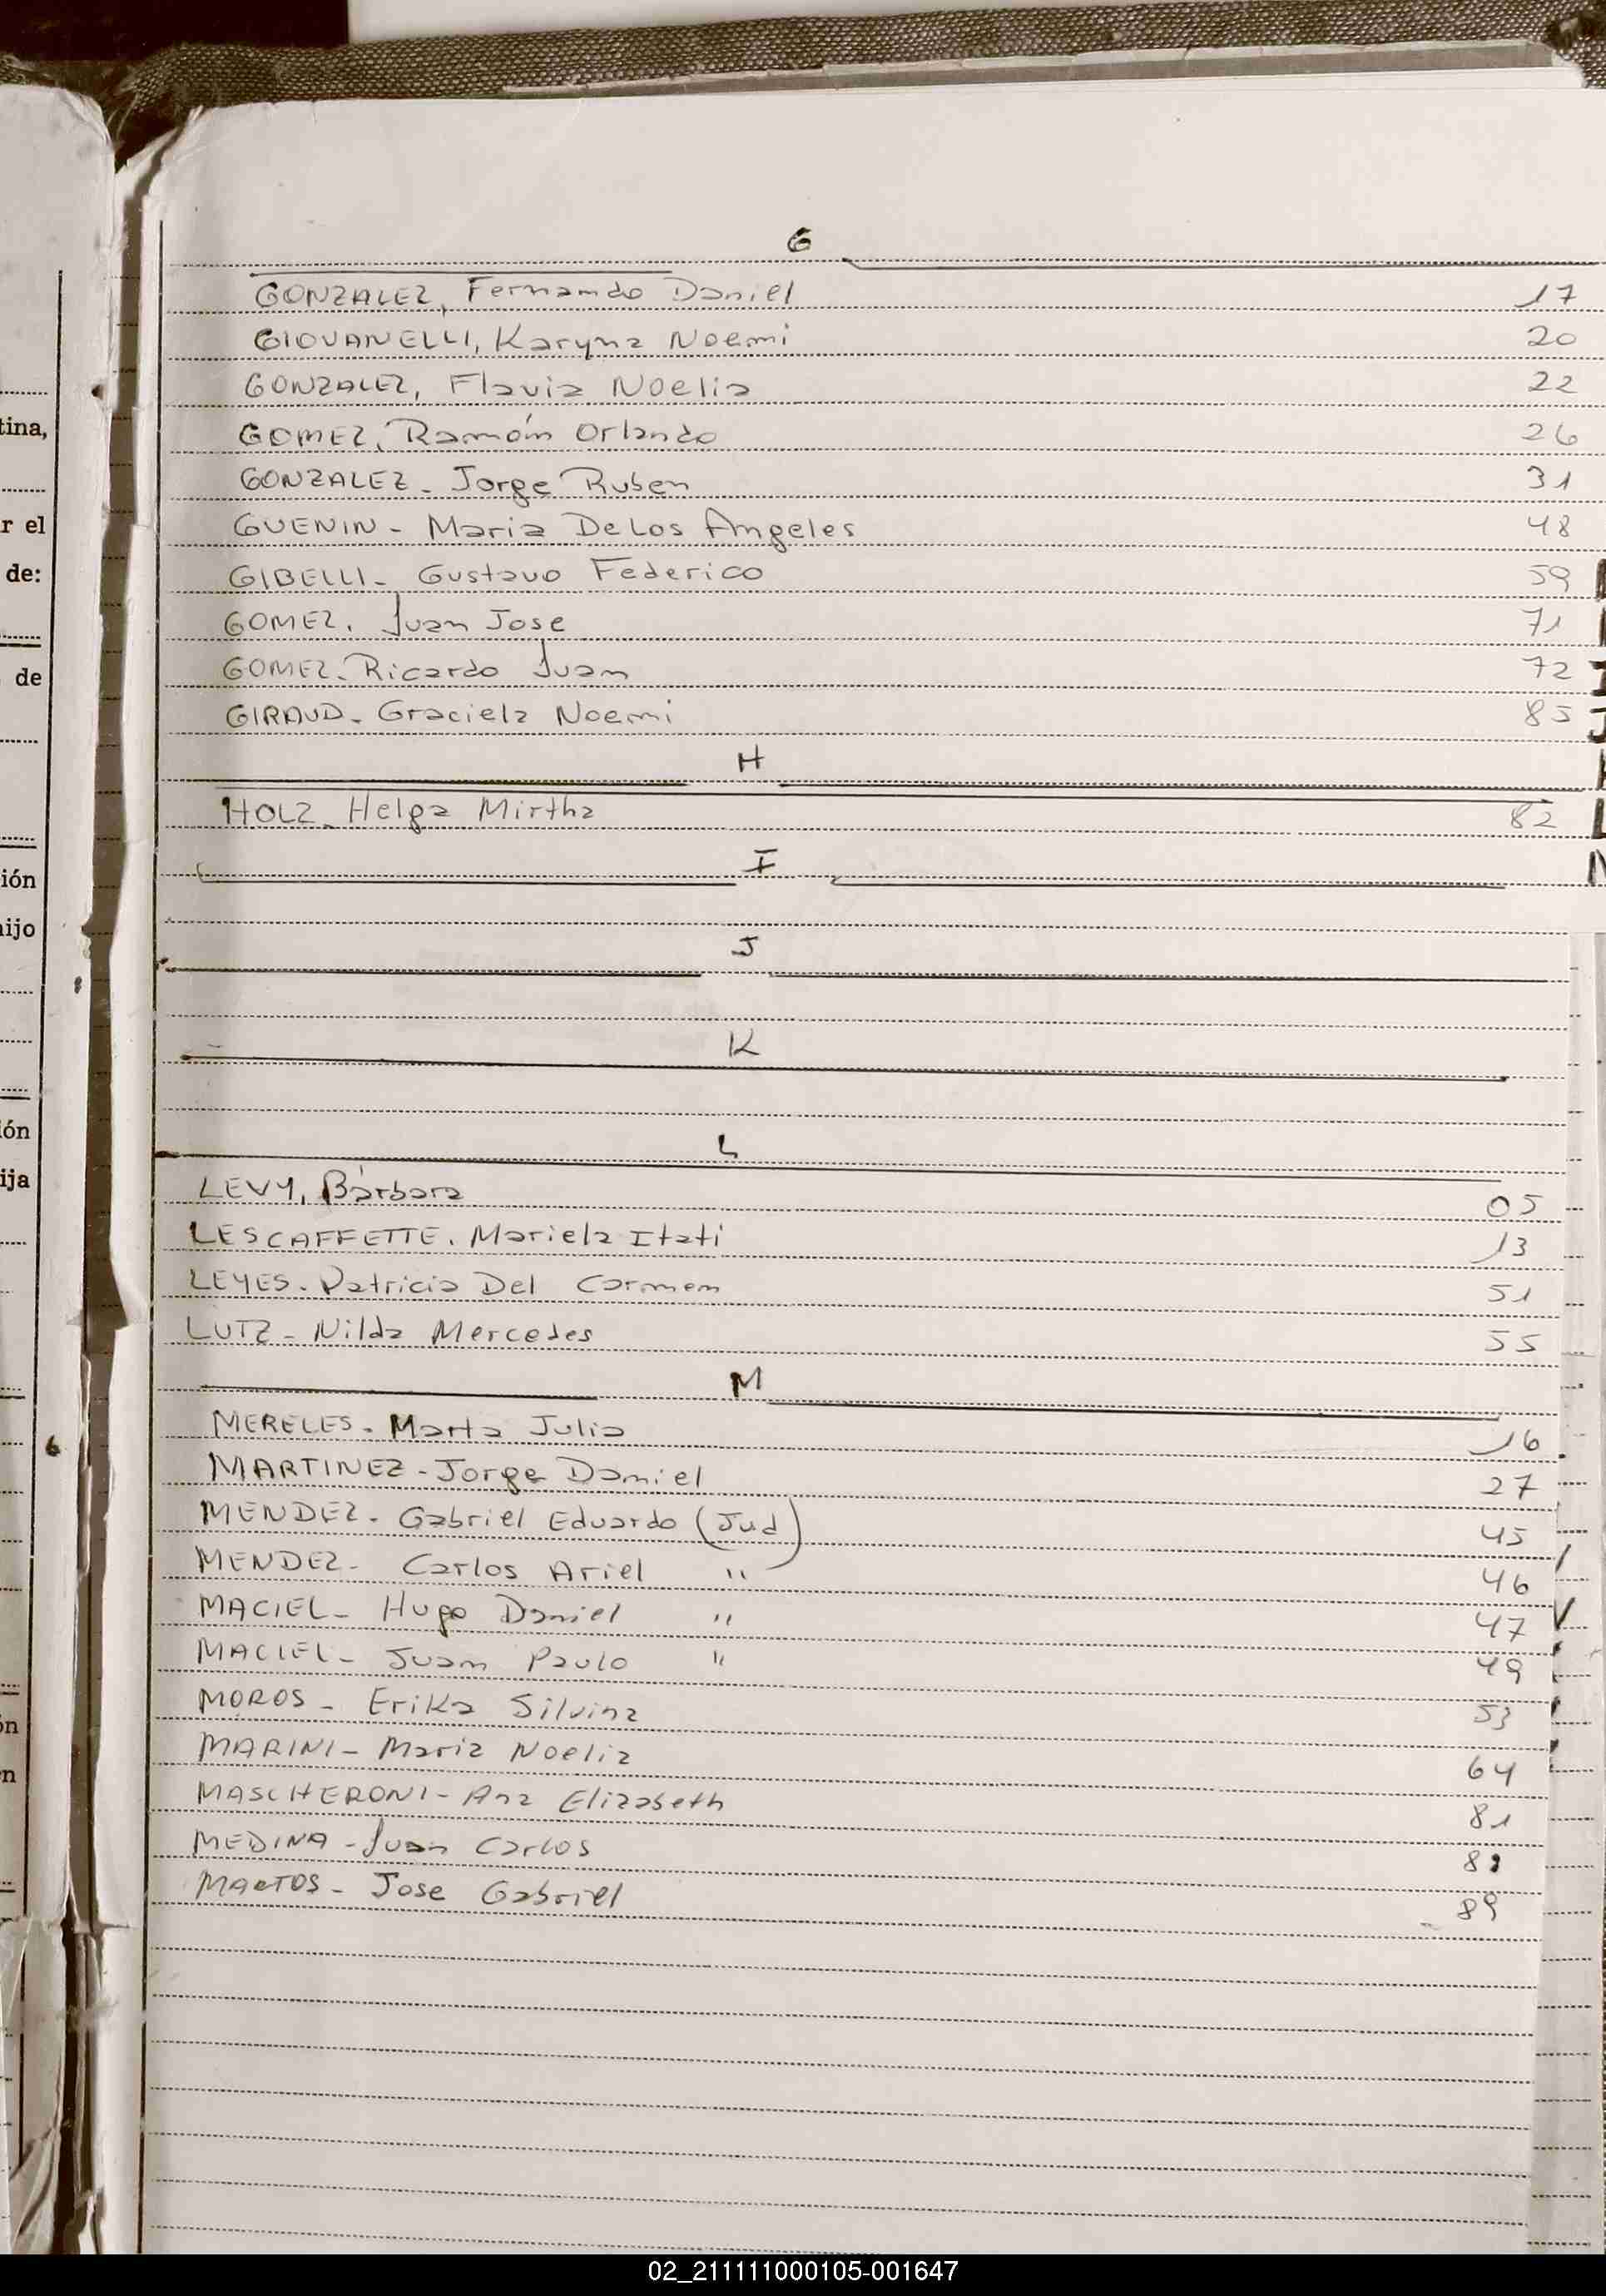 G
GONZALEZ, Fernando Daniel 17
GIOVANELLI, Karyna Noemi 20
GONZALEZ, Flavia Noelia 22
GOMEZ, Ramón Orlando 26
GONZALEZ - Jorge Ruben 31
GUENIN - Maria De Los Angeles 48
GIBELLI - Gustavo Federico 59
GOMEZ. Juan Jose 71
GOMEZ - Ricardo Juan 72
GIRAUD - Graciela Noemi 85
H
HOLZ - Helga Mirtha 82
I
J
K
L
LEVY, Bárbara 05
LESCAFFETTE. Mariela Itati 13
LEYES - Patricia Del Carmen 51
LUTZ - Nilda Mercedes 55
M
MERELES - Marta Julia 16
MARTINEZ - Jorge Daniel 27
MENDEZ - Gabriel Eduardo (Jud) 45
MENDEZ - Carlos Ariel " 46
MACIEL - Hugo Daniel " 47
MACIEL - Juan Paulo " 49
MOROS - Erika Silvina 53
MARINI - Maria Noelia 64
MASCHERONI - Ana Elizabeth 81
MEDINA - Juan Carlos
- Jose Gabriel 89
tina,
r el
de:
de
ión
hijo
ión
ija
6
ón
en
02_211111000105-001647